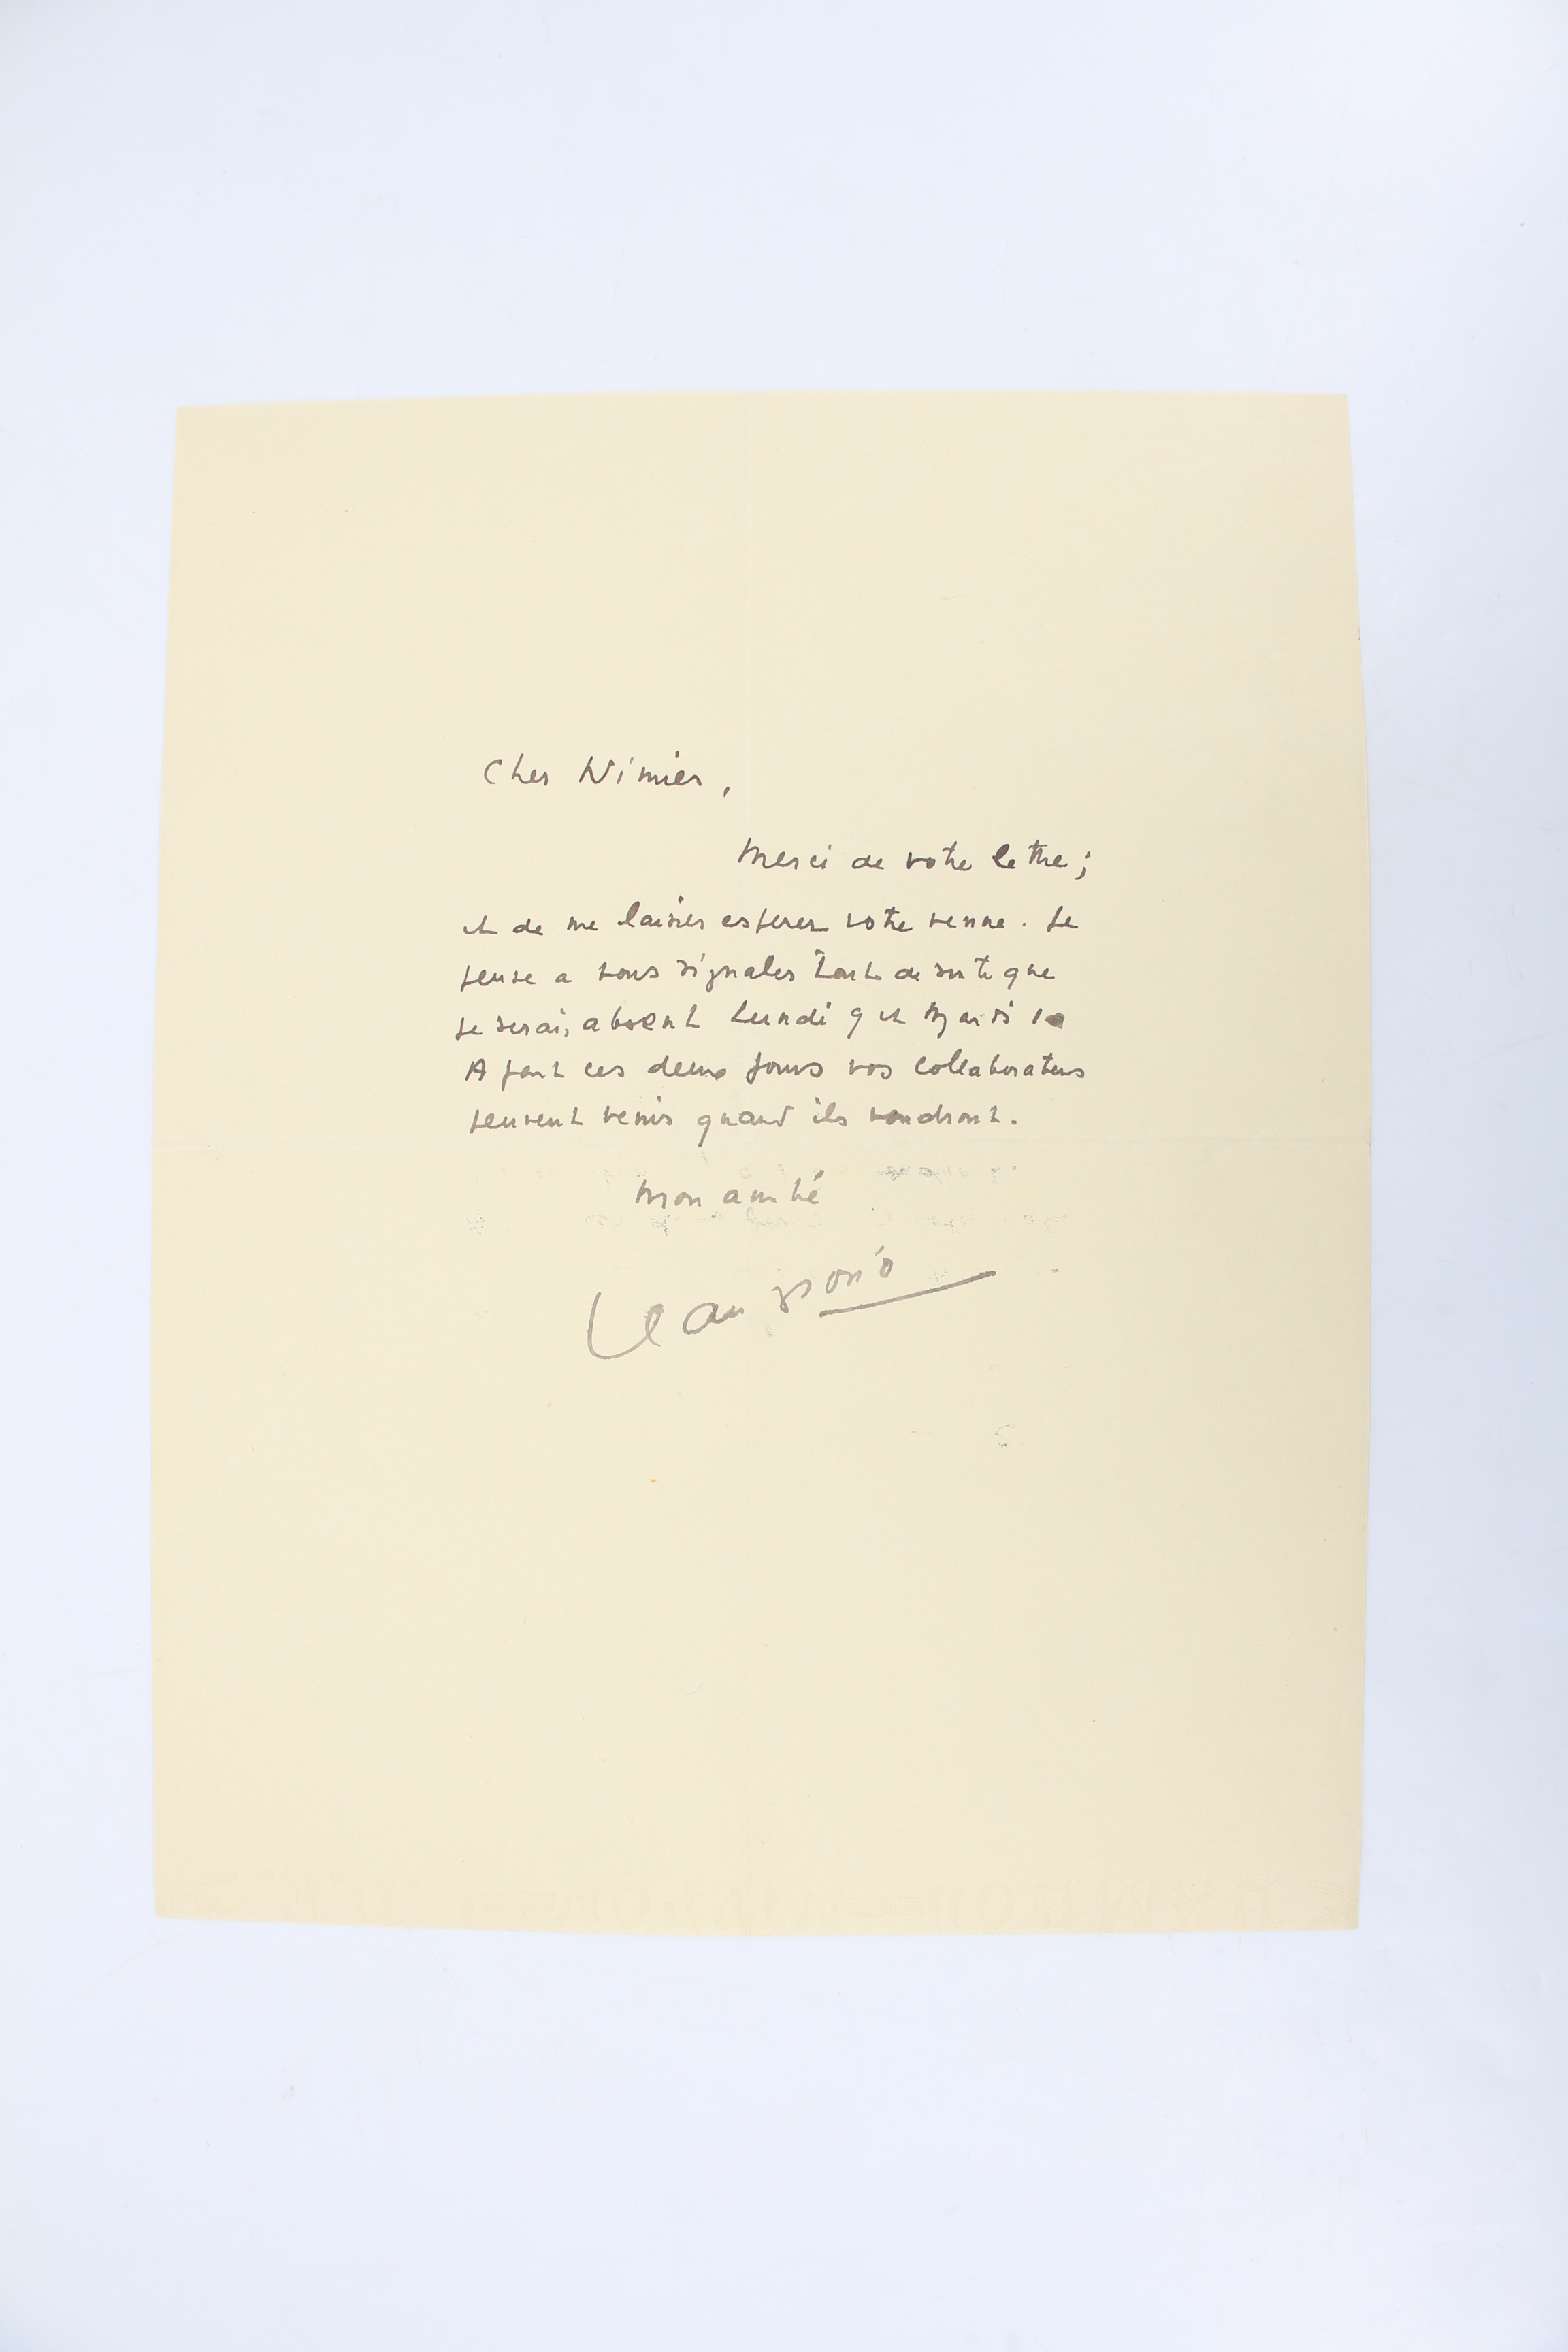 Cher Nimier,
Merci de votre lettre ;
et de me laisser esperer votre venue. Je
pense a vous signaler tout de suite que
je serai absent Lundi 9 et Mardi 10
A part ces deux jours vos collaborateurs
peuvent venir quand ils voudront.
Mon amitié
Jean Giono